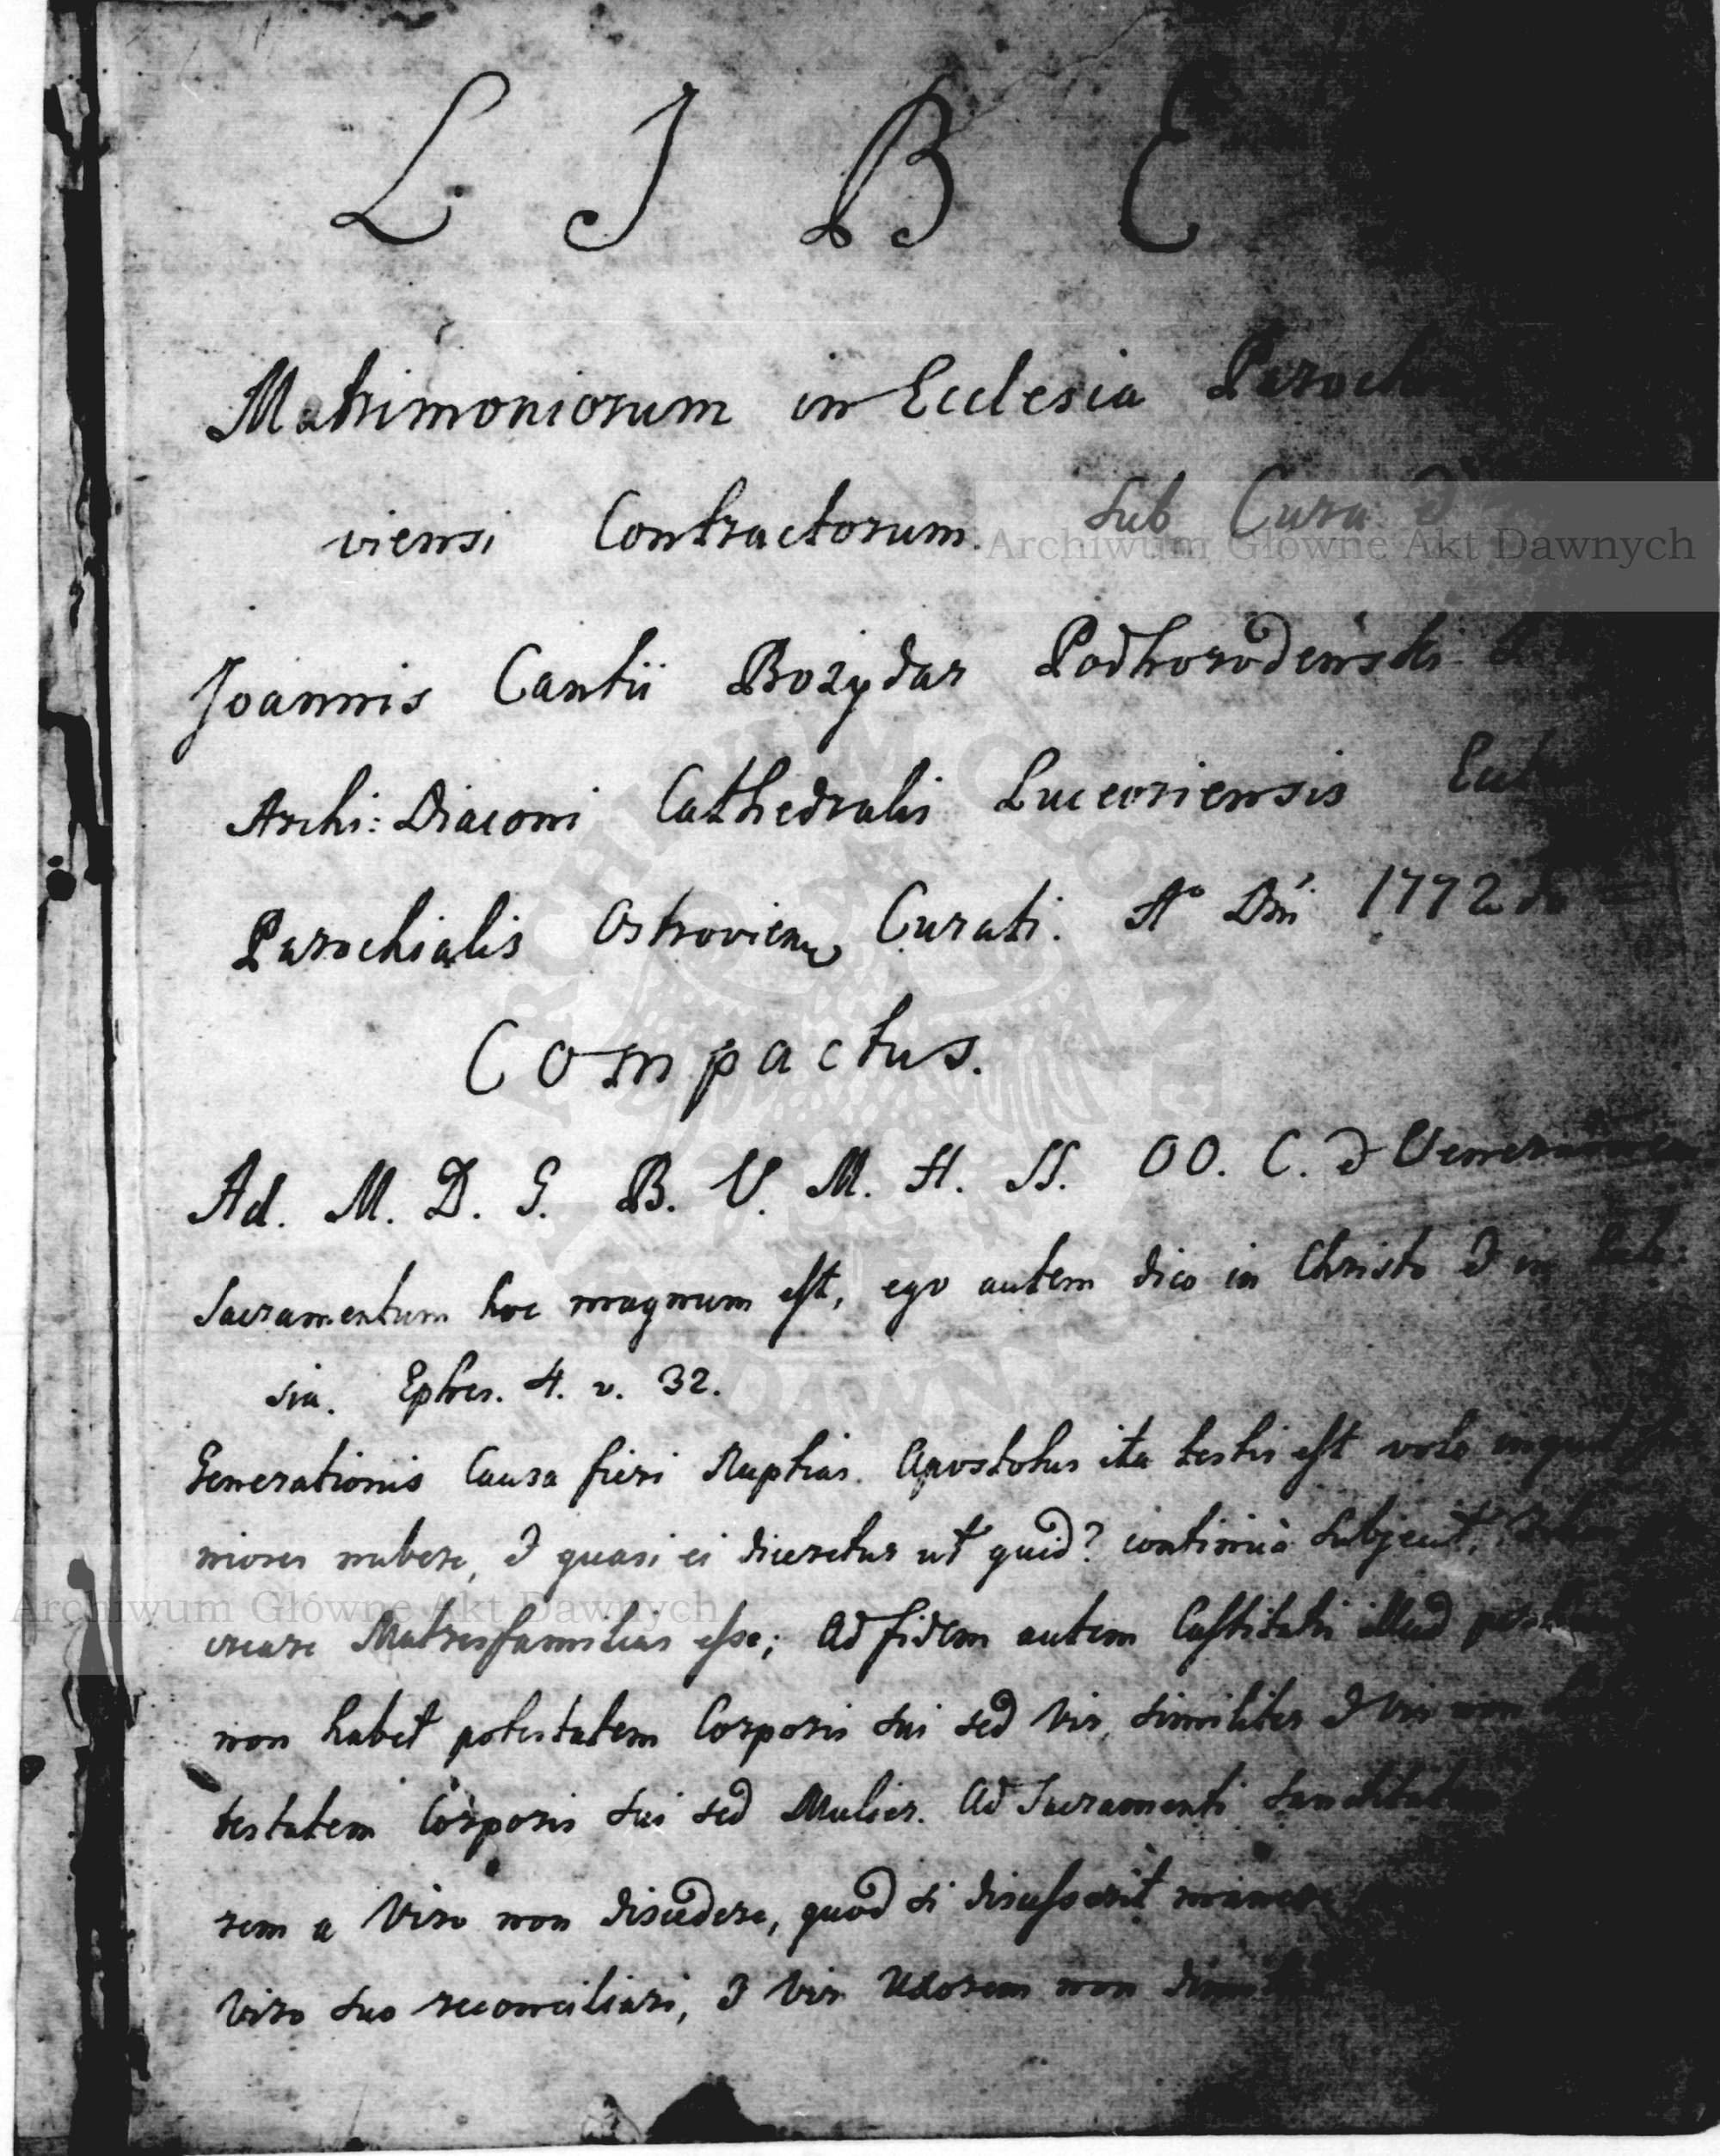 L I B E
Matrimoniorum in Ecclesia Paroch
viensi Contractorum. Sub Cura
Archiwum Główne Akt Dawnych
Joannis Cantii Bozydar Podhorodeński
Archi: Diaconi Cathedralis Luceoriensis
Parochialis Ostroviens Curati. Aº Dni 1772
Compactus.
Ad. M. D. G. B. V. M. H. SS. OO. C. &
Sacramentum hoc magnum est, ego autem dico in Christo & in
sia. Ephes. 4. v. 32.
Generationis Causa fieri Nuptias. Apostolus ita testis est volo inquit
niores nubere, & quasi ei diceretur ut quid? continuò Subjecit,
Archiwum Główne Akt Dawnych
creare Matresfamilias esse; Ad fidem autem Castitatis illud
non habet potestatem Corporis sui sed Vir, similiter & Vir non
testatem Corporis sui sed Mulier. Ad Sacramenti Sanctitatem
rem a Viro non discedere, quod si discesserit manere
Viro suo reconciliari, & Vir Uxorem non